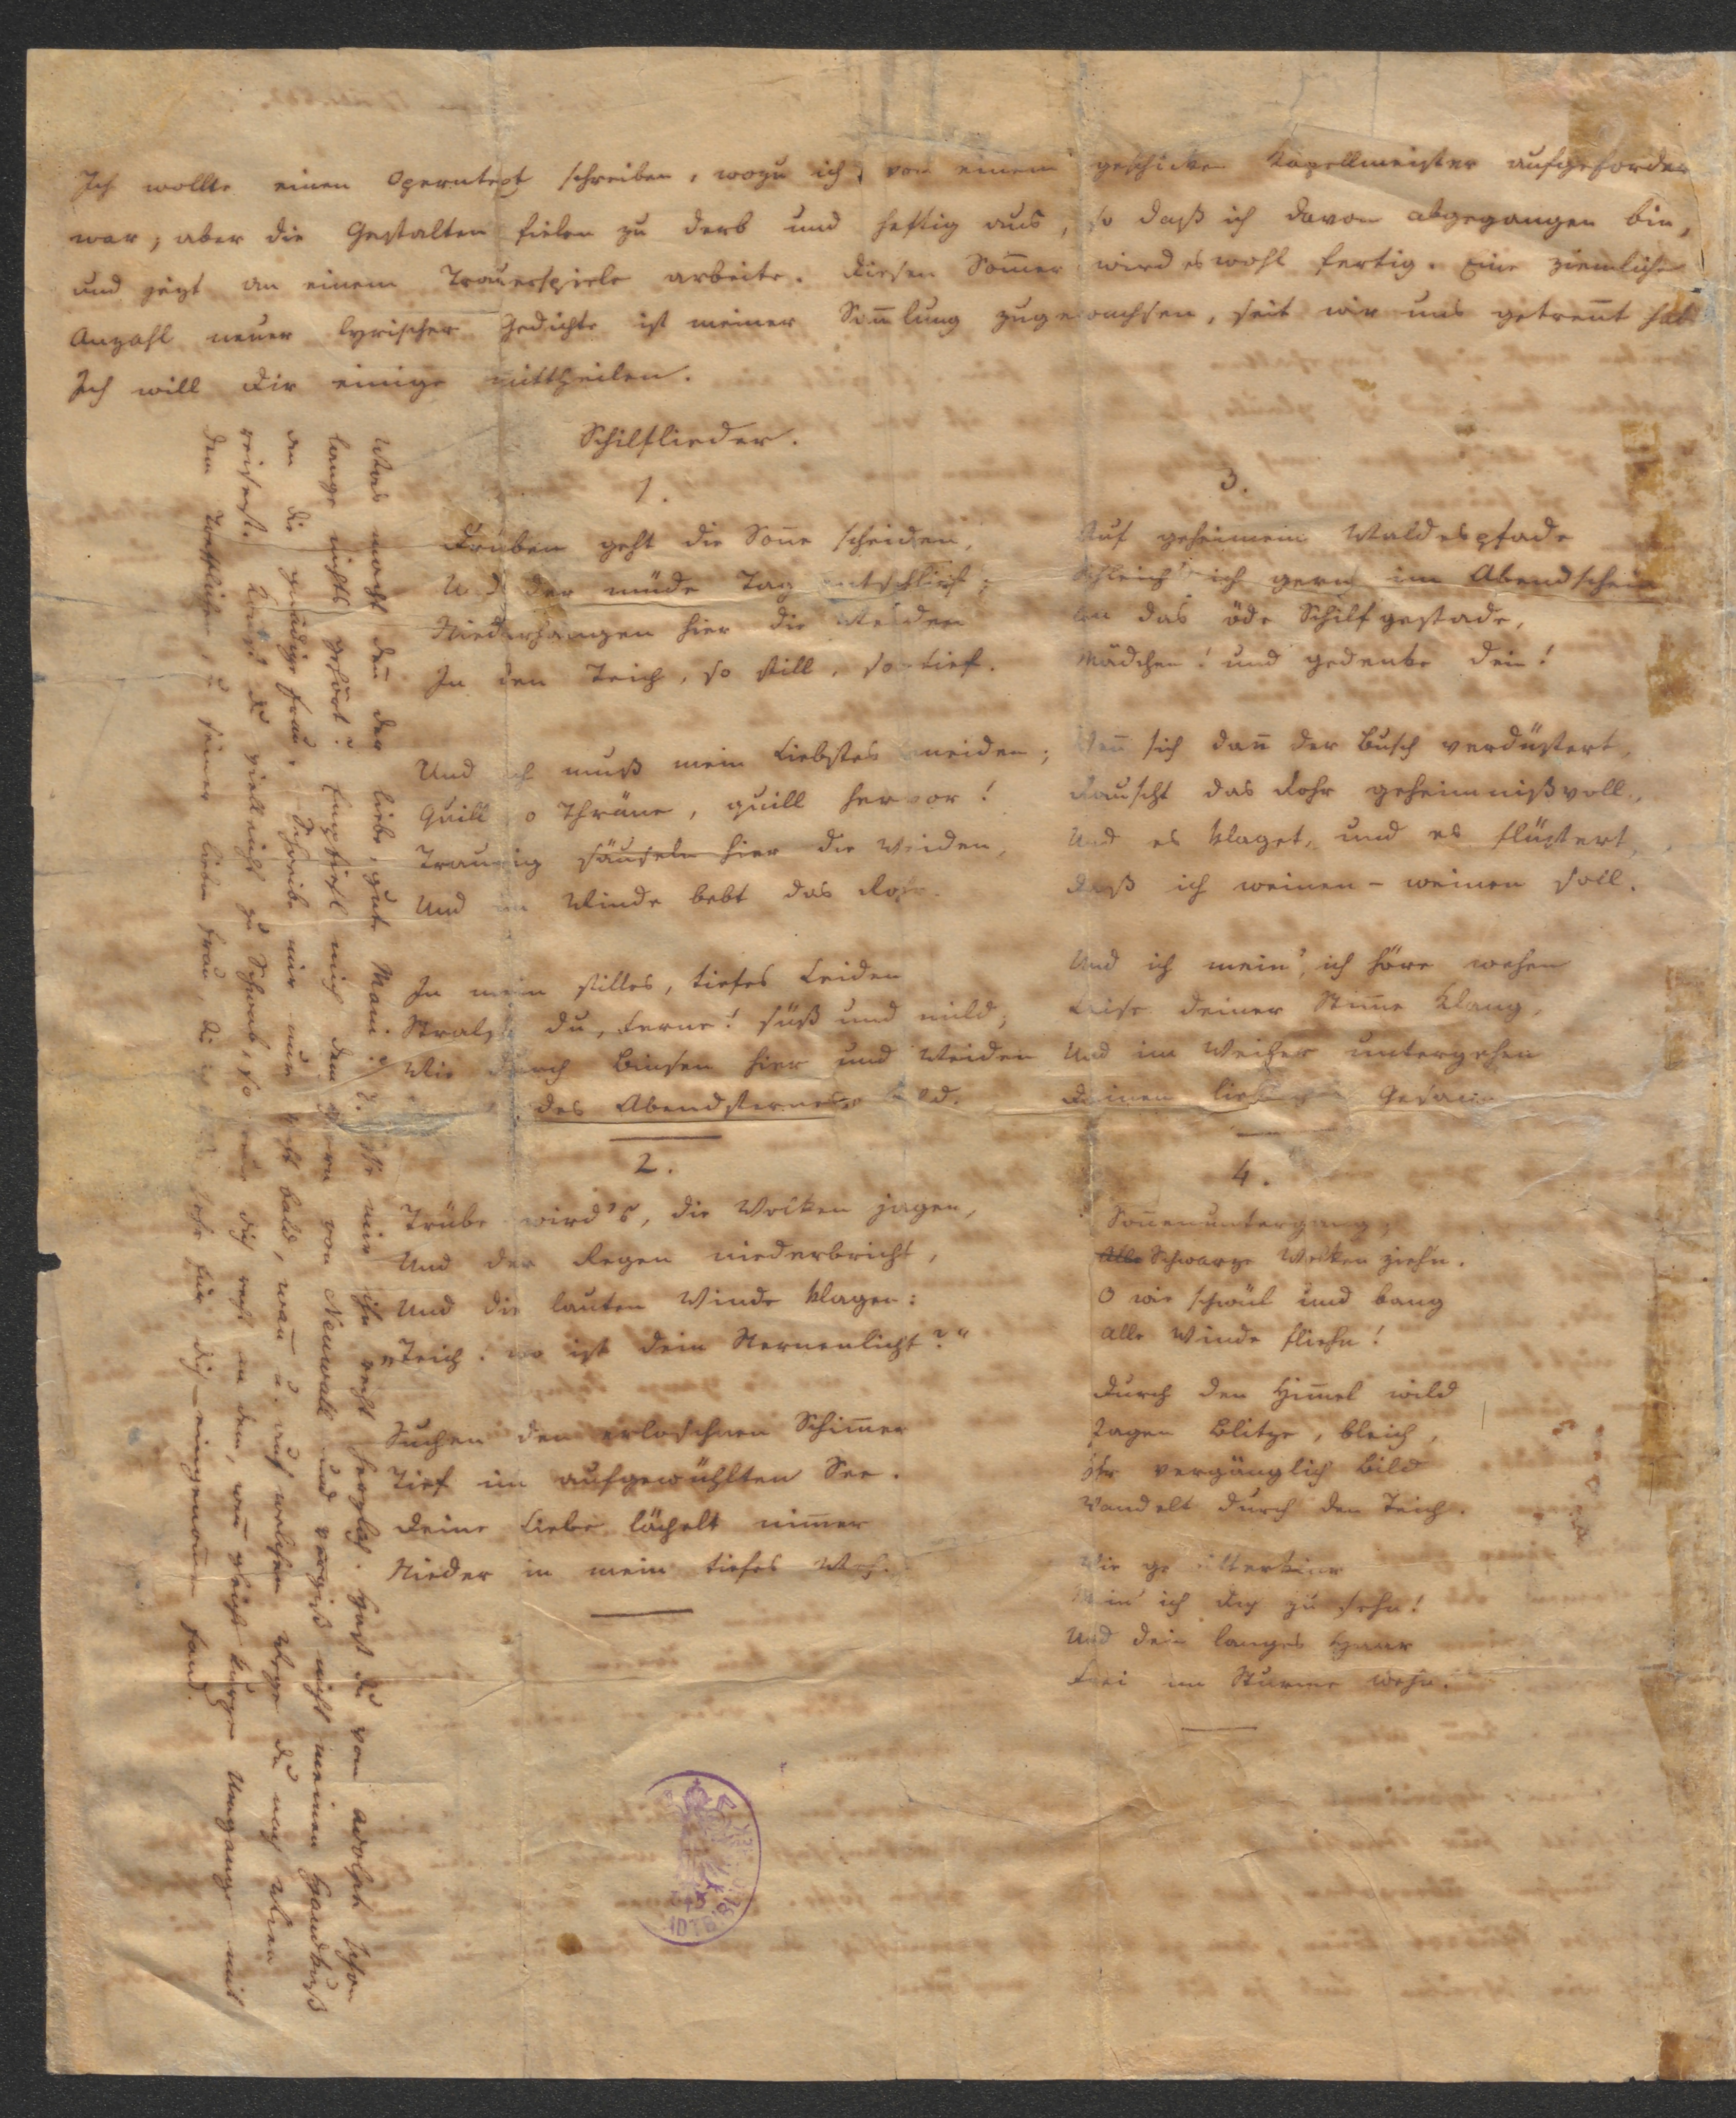 Ich wollte einen Operntext schreiben, wozu ich von einem geschickten Kapellmeister aufgefordert
war; aber die Gestalten fielen zu derb und heftig aus, so daß ich davon abgegangen bin,
und jezt an einem Trauerspiele arbeite. Diesen Som̄er wird es wohl fertig. Eine ziemliche
Anzahl neuer lyrischer Gedichte ist meiner Sam̄lung zugewachsen, seit wir uns getren̄t hab
Ich will Dir einige mittheilen.
Schilflieder.
1.
Drüben geht die Son̄e scheiden,
Und der müde Tag entschlief;
Niederhangen hier die Weiden
In den Teich, so still, so tief.
Und ich muß mein Liebstes meiden;
Quill o Thräne, quill hervor!
Traurig säuseln hier die Weiden,
Und im Winde bebt das Rohr.
In mein stilles, tiefes Leiden
Stralst du, Ferne! süß und mild;
Wie durch Binsen hier und Weiden
des Abendsternes Bild.
2.
Trübe wird's, die Wolken jagen,
Und der Regen niederbricht,
Und die lauten Winde klagen:
„Teich, wo ist dein Sternenlicht?"
Suchen den erloschnen Schim̄er
Tief im aufgewühlten See.
Deine Liebe lächelt nim̄er
Nieder in mein tiefes Weh.
3.
Auf geheimem Waldespfade
Schleich' ich gern im Abendschein
An das öde Schilfgestade,
Mädchen! und gedenke dein!
Wen̄ sich dan̄ der Busch verdüstert,
Rauscht das Rohr geheimnißvoll,
Und es klaget, und es flüstert,
Daß ich weinen - weinen soll.
Und ich mein', ich höre wehen
Leise deiner Stim̄e Klang,
Und im Weiher untergehen
Deinen lieblichen Gesang
4.
Son̄enuntergang;
Alle Schwarze Wolken ziehn.
O wie schwül und bang
Alle Winde fliehn!
Durch den Him̄el wild
Jagen Blitze, bleich,
Ihr vergänglich Bild
Wandelt durch den Teich.
Wie gewitterklar
Mein' ich dich zu sehn!
Und dein langes Haar
Frei im Sturme wehn.
Was macht den̄ der liebe, gute Maier? Grüße mir ihn recht herzlich. Hast du von Adolph schon
lange nichts gehört? Empfiehl mich dem Herrn von Neuwall und vergiß nicht meinen Handkuß
an die gnädige Frau. Schreibe mir nun recht bald, wan̄ u. auf welchem Wege du nach Wien
reisest. Kom̄st du vielleicht zu Schwab, so dich recht an dem, wen̄ gleich kurzen Umgange mit
dem Trefflichen, u seiner lieben Frau, die ich sehr für dich eingenom̄en fand.